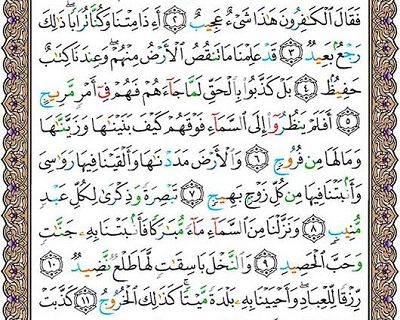 فَقَالَ ٱلْكَٰفِرُونَ هَٰذَا شَىْءٌ عَجِيبٌ ٢ أَءِذَا مِتْنَا وَكُنَّا تُرَابًا ۖ ذَٰلِكَ
رَجْعٌۢ بَعِيدٌ ٣ قَدْ عَلِمْنَا مَا تَنقُصُ ٱلْأَرْضُ مِنْهُمْ ۖ وَعِندَنَا كِتَٰبٌ
حَفِيظٌۢ ٤ بَلْ كَذَّبُوا۟ بِٱلْحَقِّ لَمَّا جَآءَهُمْ فَهُمْ فِىٓ أَمْرٍ مَّرِيجٍ
٥ أَفَلَمْ يَنظُرُوٓا۟ إِلَى ٱلسَّمَآءِ فَوْقَهُمْ كَيْفَ بَنَيْنَٰهَا وَزَيَّنَّٰهَا
وَمَا لَهَا مِن فُرُوجٍ ٦ وَٱلْأَرْضَ مَدَدْنَٰهَا وَأَلْقَيْنَا فِيهَا رَوَٰسِىَ
وَأَنۢبَتْنَا فِيهَا مِن كُلِّ زَوْجٍۭ بَهِيجٍ ٧ تَبْصِرَةً وَذِكْرَىٰ لِكُلِّ عَبْدٍ
مُّنِيبٍ ٨ وَنَزَّلْنَا مِنَ ٱلسَّمَآءِ مَآءً مُّبَٰرَكًا فَأَنۢبَتْنَا بِهِۦ جَنَّٰتٍ
وَحَبَّ ٱلْحَصِيدِ ٩ وَٱلنَّخْلَ بَاسِقَٰتٍ لَّهَا طَلْعٌ نَّضِيدٌ ١٠
رِّزْقًا لِّلْعِبَادِ ۖ وَأَحْيَيْنَا بِهِۦ بَلْدَةً مَّيْتًا ۚ كَذَٰلِكَ ٱلْخُرُوجُ ١١ كَذَّبَتْ